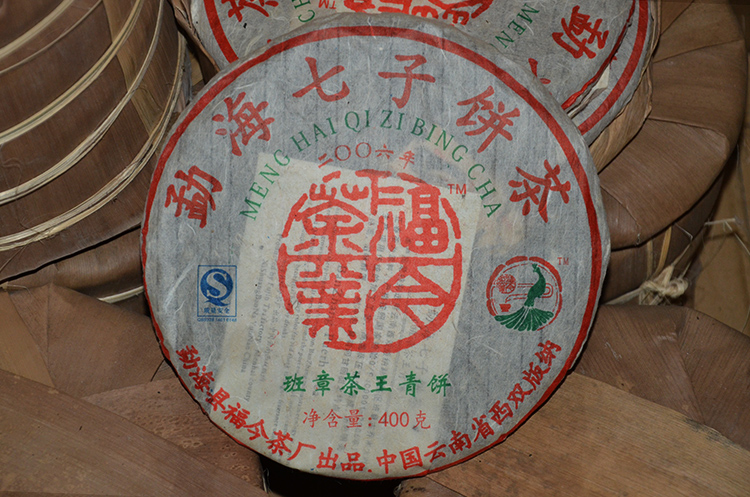 勐海七子饼茶
MENG HAI QI ZI BING CHA
二〇〇六年
福今茶業
TM
TM
质量安全
班章茶王青饼
净含量：400克
勐海县福今茶厂出品.中国云南省西双版纳